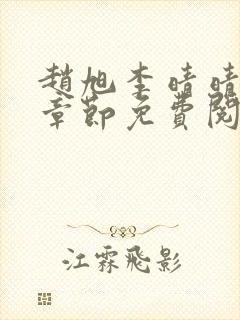 趙旭李晴晴
章節免費閱
江霖飛影